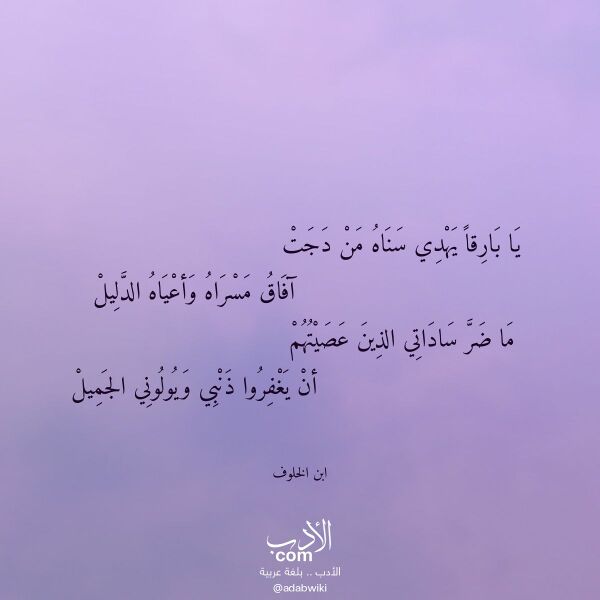 يَا بَارِقاً يَهْدِي سَنَاهُ مَنْ دَجَتْ
آفَاقُ مَسْرَاهُ وَأعْيَاهُ الدَّلِيلْ
مَا ضَرَّ سَادَاتِي الذِينَ عَصَيْتُهُمْ
أنْ يَغْفِرُوا ذَنْبِي وَيُولُونِي الجَمِيلْ
ابن الخلوف
الأدب
.com
الأدب .. بلغة عربية
@adabwiki